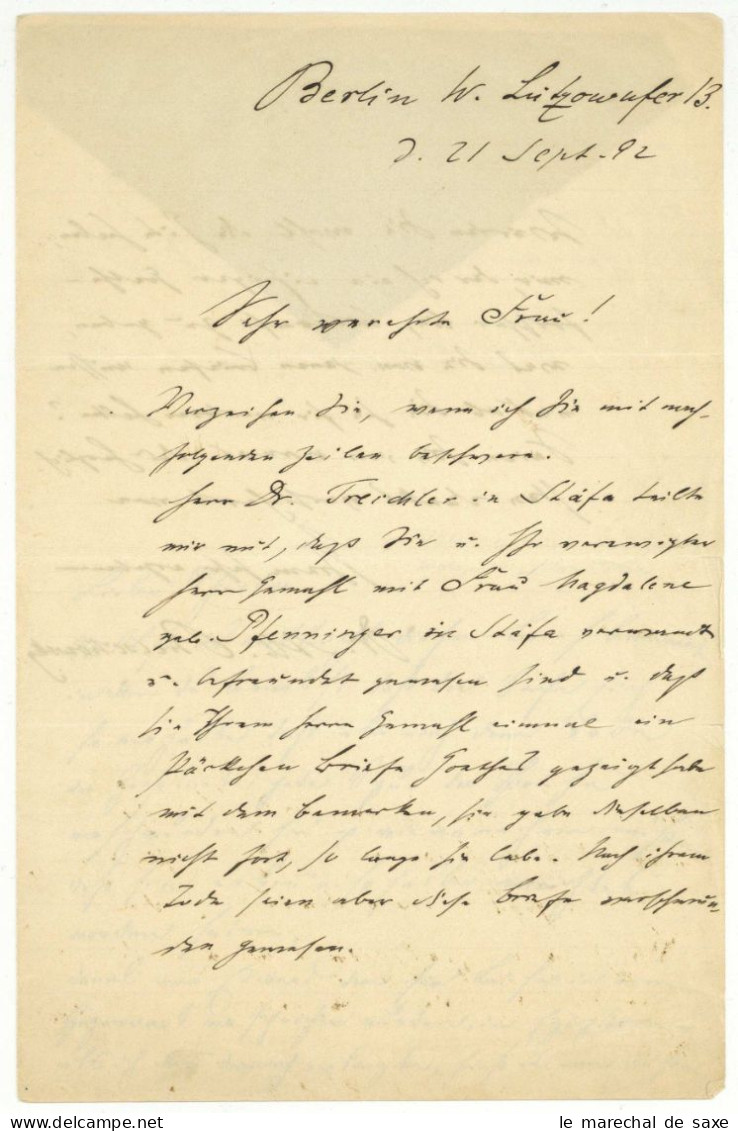 Berlin W. Lützowufer 13.
d. 21 Sept. 92
Sehr verehrte Frau!
Verzeihen Sie, wenn ich Sie mit nach-
folgenden Zeilen beschwere.
Herr Dr. Treichler in Stäfa teilte
mir mit, daß Sie u. Ihr verewigter
Herr Gemahl mit Frau Magdalene
geb. Pfenninger in Stäfa verwandt
u. befreundet gewesen sind u. daß
sie Ihrem Herrn Gemahl einmal ein
Päckchen Briefe Goethes gezeigt habe
mit dem Bemerken, sie gebe dieselben
nicht fort, so lange sie lebe. Nach ihrem
Tode seien aber diese Briefe verschwun-
den gewesen.
le marechal de saxe